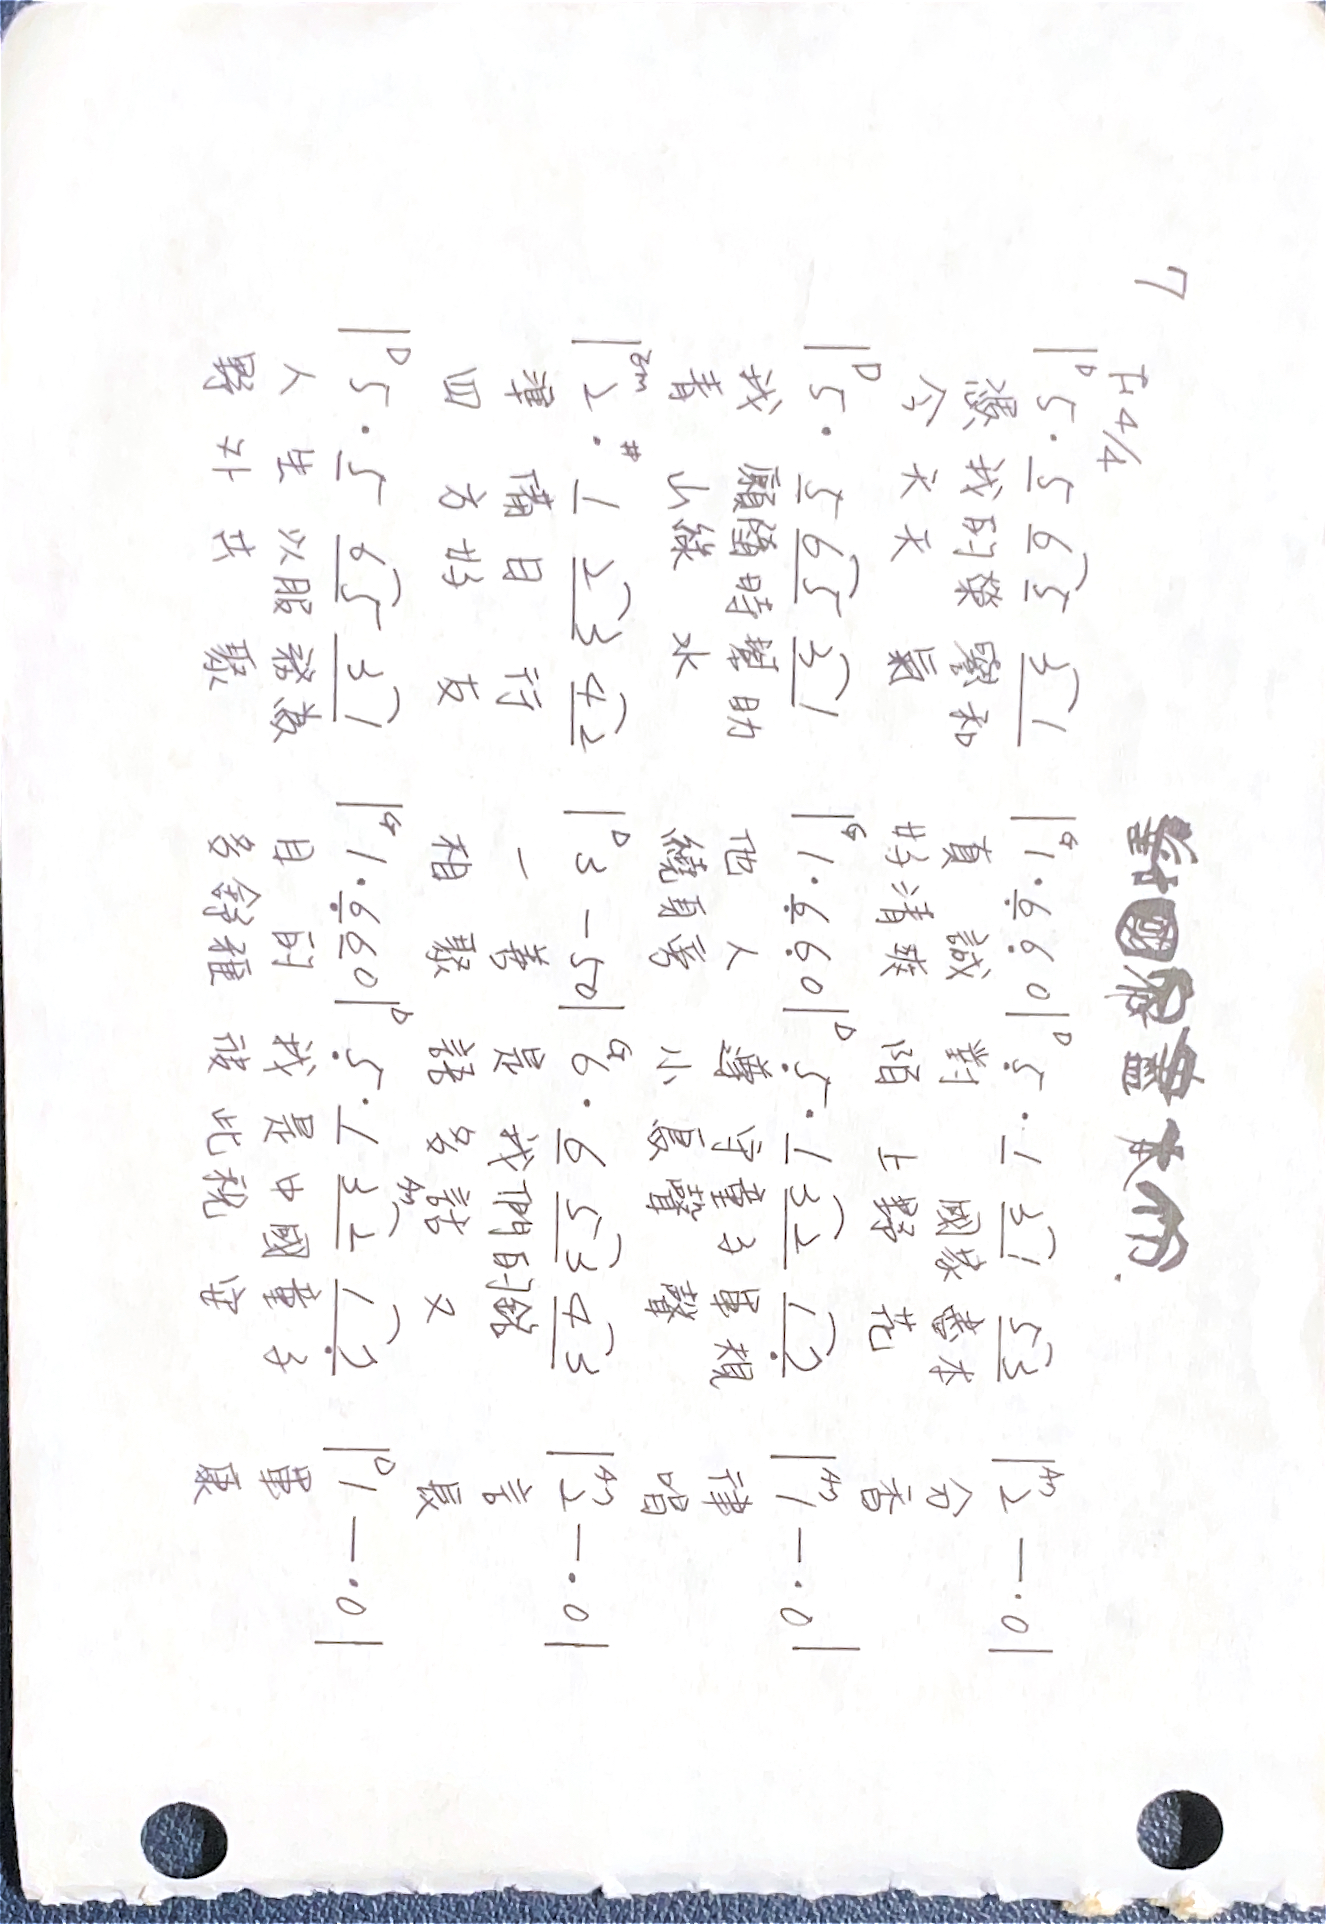 7 對國家盡本份.
F 4/4
|D 5 . 5 6 5 3 1 |G 1 . 6 6 0 |D 5 . 1 3 1 5 3 |A7 2 — . 0 |
憑我的榮譽和真誠對國家盡本分
今天天氣好清爽陌上野花香
|D 5 . 5 6 5 3 1 |G 1 . 6 6 0 |D 5 . 1 3 2 1 7 |A7 1 — . 0 |
我願隨時幫助他人遵守童子軍規律
青山綠水繞身旁小鳥聲聲唱
|Em 2 . #1 2 3 4 2 |D 3 — 5 0 |G 6 . 6 5 3 4 3 |A7 2 — . 0 |
準備日行一善是我們的銘言
四方好友相聚語多話又長
|D 5 . 5 6 5 3 1 |G 1 . 6 6 0 |D 5 . 1 A7 3 2 1 7 |D 1 — . 0 |
人生以服務為目的我是中國童子軍
野外共聚多舒雅彼此祝安康